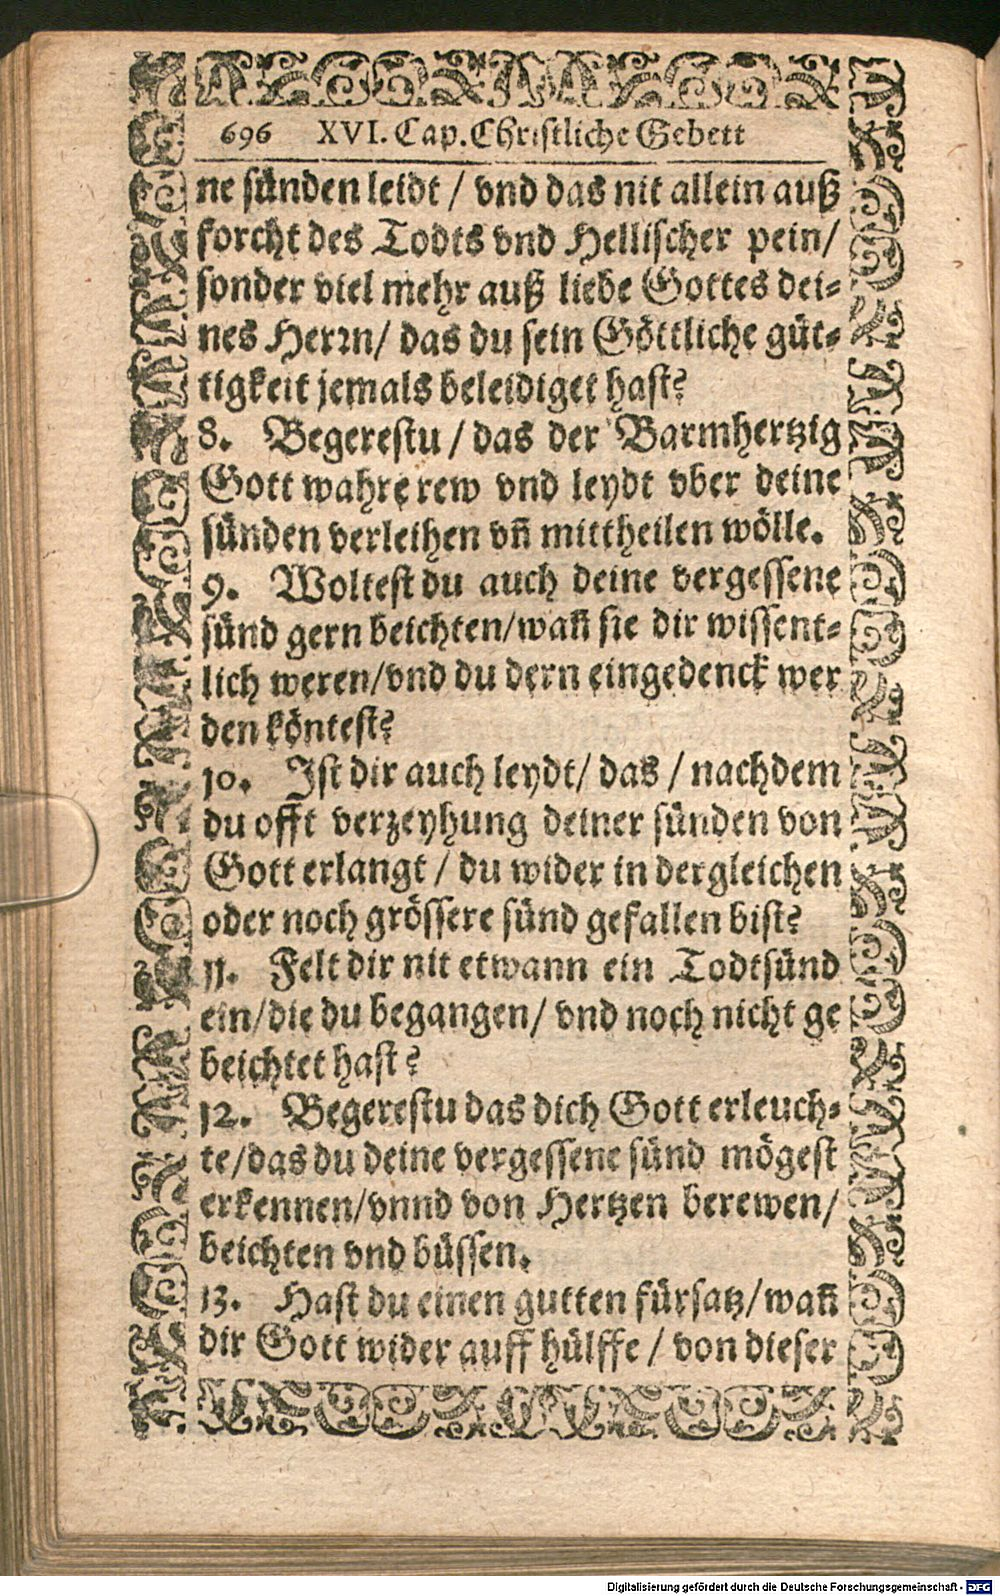 696 XVI. Cap. Christliche Gebett
ne sünden leidt / vnd das nit allein auß
forcht des Todts vnd Hellischer pein/
sonder viel mehr auß liebe Gottes dei-
nes Herrn/ das du sein Göttliche güt-
tigkeit jemals beleidiget hast?
8. Begerestu / das der Barmhertzig
Gott wahre rew vnd leydt vber deine
sünden verleihen vñ mittheilen wölle.
9. Woltest du auch deine vergessene
sünd gern beichten/wañ sie dir wissent-
lich weren/vnd du dern eingedenck wer
den köntest?
10. Ist dir auch leydt/ das / nachdem
du offt verzeyhung deiner sünden von
Gott erlangt / du wider in dergleichen
oder noch grössere sünd gefallen bist?
11. Felt dir nit etwann ein Todtsünd
ein/die du begangen/ vnd noch nicht ge
beichtet hast?
12. Begerestu das dich Gott erleuch-
te/das du deine vergessene sünd mögest
erkennen/vnnd von Hertzen berewen/
beichten vnd büssen.
13. Hast du einen gutten fürsatz/wañ
dir Gott wider auff hülffe / von dieser
Digitalisierung gefördert durch die Deutsche Forschungsgemeinschaft - DFG